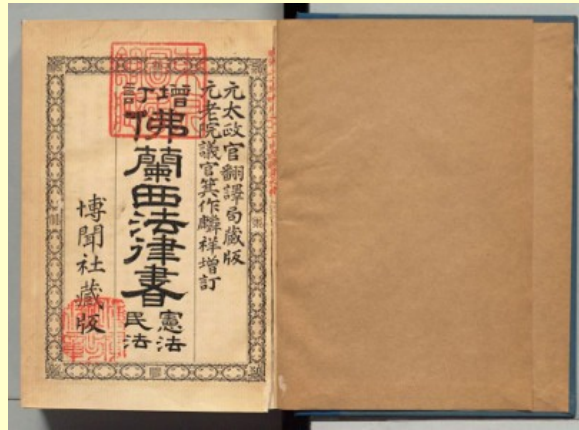 元太政官翻譯局蔵版
元老院議官箕作麟祥増訂
增訂
佛蘭西法律書
憲法
民法
博聞社藏版